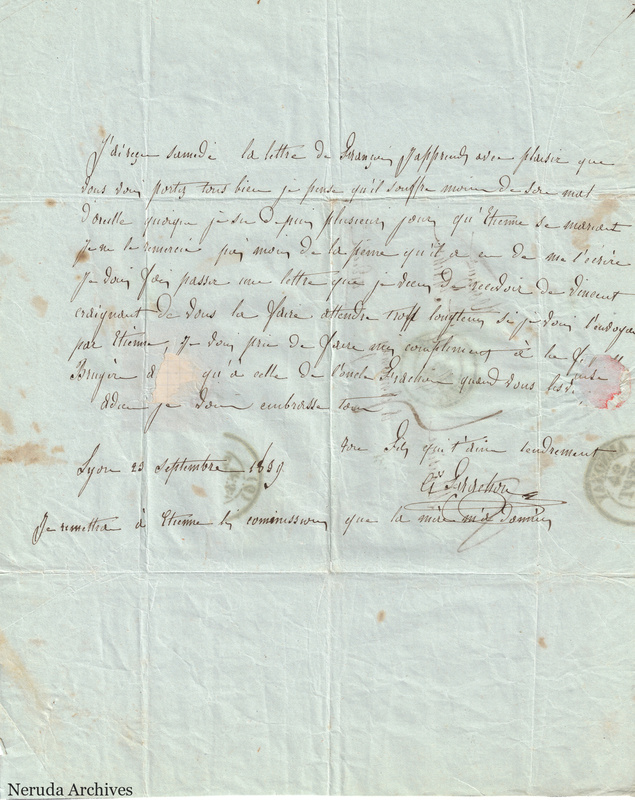 J'ai reçu samedi la lettre de François J'apprends avec plaisir que
vous vous portez tous bien je pense qu'il souffre moins de son mal
d'oreille quoique je su depuis plusieurs jours qu'Etienne se mariait
je ne le remercie pas moins de la peine qu'il a eu de me l'écrire
Je vous fais passer une lettre que je viens de recevoir de Vincent
craignant de vous la faire attendre trop longtems si je vous l'envoyai
par Etienne, Je vous prie de faire mes compliment à la
Bruyère qu'à celle de l'oncle Frachon quand vous
adieu je vous embrasse tous
ton fils qui t'aime tendrement
Lyon 23 septembre 1839
Frachon
Je remettrai à Etienne les commissions que la mère m'a données
Neruda Archives